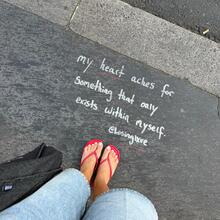 my heart aches for
Something that only
exists within myself.